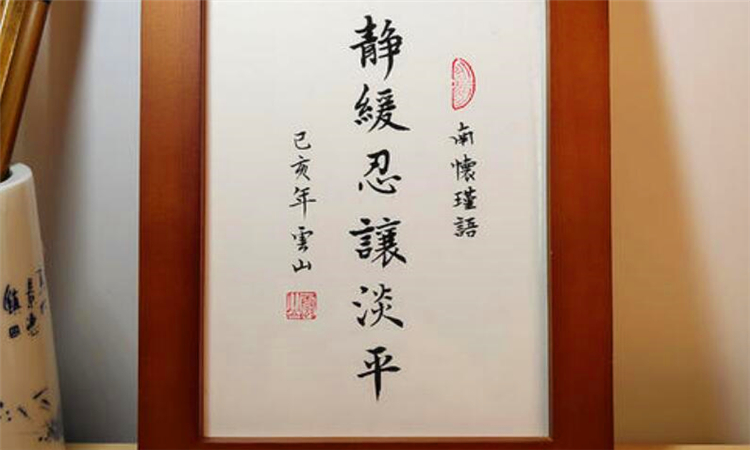 南懷瑾語
静緩忍讓淡平
己亥年雲山